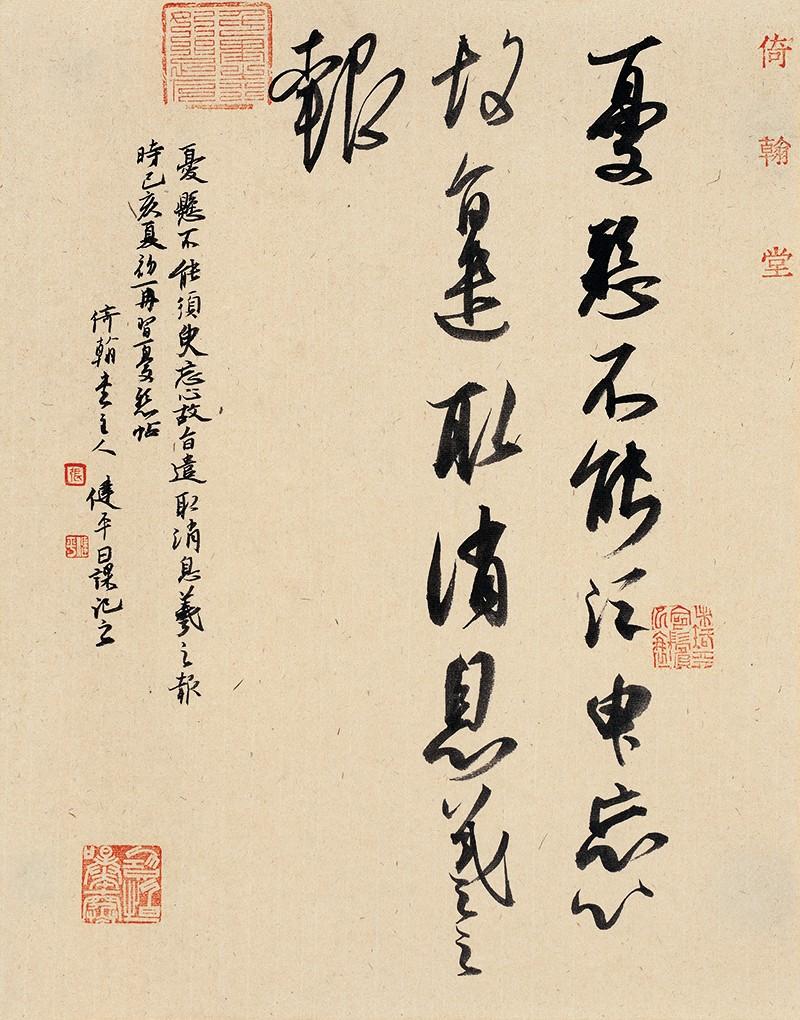 倚翰堂
憂懸不能須臾忘心
故旨遣取消息羲之
報
憂懸不能須臾忘心故旨遣取消息羲之報
時己亥夏初一再習憂懸帖
倚翰堂主人
健平日課記之
張